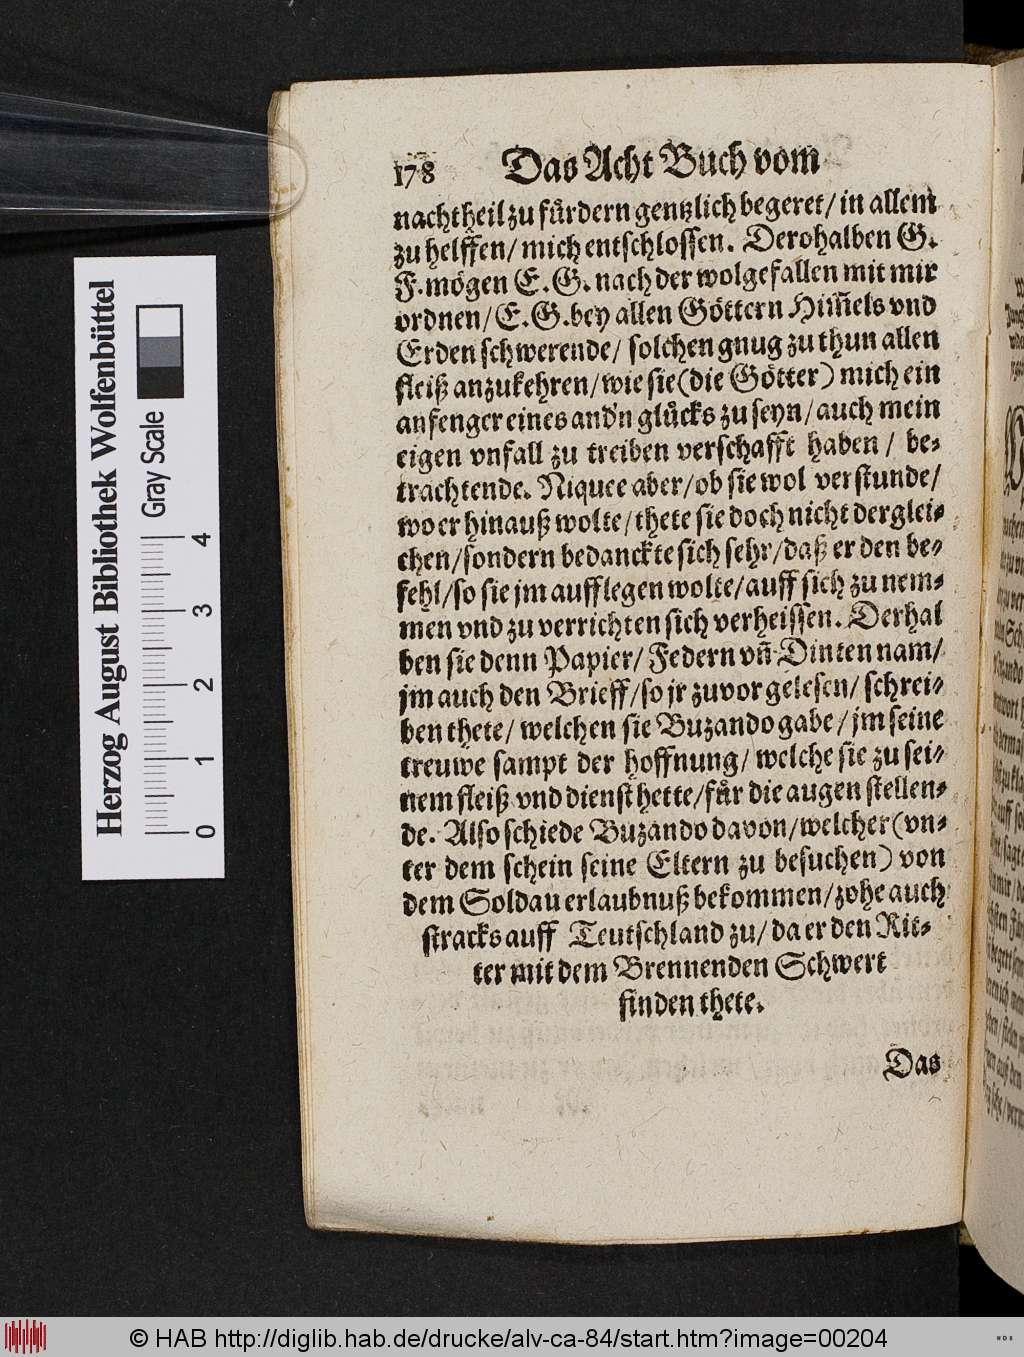 178 Das Acht Buch vom
nachtheil zu fuͤrdern gentzlich begeret/ in allem
zu helffen/ mich entschlossen. Derohalben G.
F. moͤgen E. G. nach der wolgefallen mit mir
ordnen/ E. G. bey allen Goͤttern Him̃els vnd
Erden schwerende/ solchen gnug zu thun allen
fleiß anzukehren/ wie sie (die Goͤtter) mich ein
anfenger eines and'n gluͤcks zu seyn/ auch mein
eigen vnfall zu treiben verschafft haben/ be-
trachtende. Niquee aber/ ob sie wol verstunde/
wo er hinauß wolte/ thete sie doch nicht derglei-
chen/ sondern bedanckte sich sehr/ daß er den be-
fehl/ so sie jm aufflegen wolte/ auff sich zu nem-
men vnd zu verrichten sich verheissen. Derhal
ben sie denn Papier/ Federn vñ Dinten nam/
jm auch den Brieff/ so jr zuvor gelesen/ schrei-
ben thete/ welchen sie Buzando gabe/ jm seine
treuwe sampt der hoffnung/ welche sie zu sei-
nem fleiß vnd dienst hette/ fuͤr die augen stellen-
de. Also schiede Buzando davon/ welcher (vn-
ter dem schein seine Eltern zu besuchen) von
dem Soldau erlaubnuß bekommen/ zohe auch
stracks auff Teutschland zu/ da er den Rit-
ter mit dem Brennenden Schwert
finden thete.
Das
Herzog August Bibliothek Wolfenbüttel
Gray Scale
0 1 2 3 4
© HAB http://diglib.hab.de/drucke/alv-ca-84/start.htm?image=00204